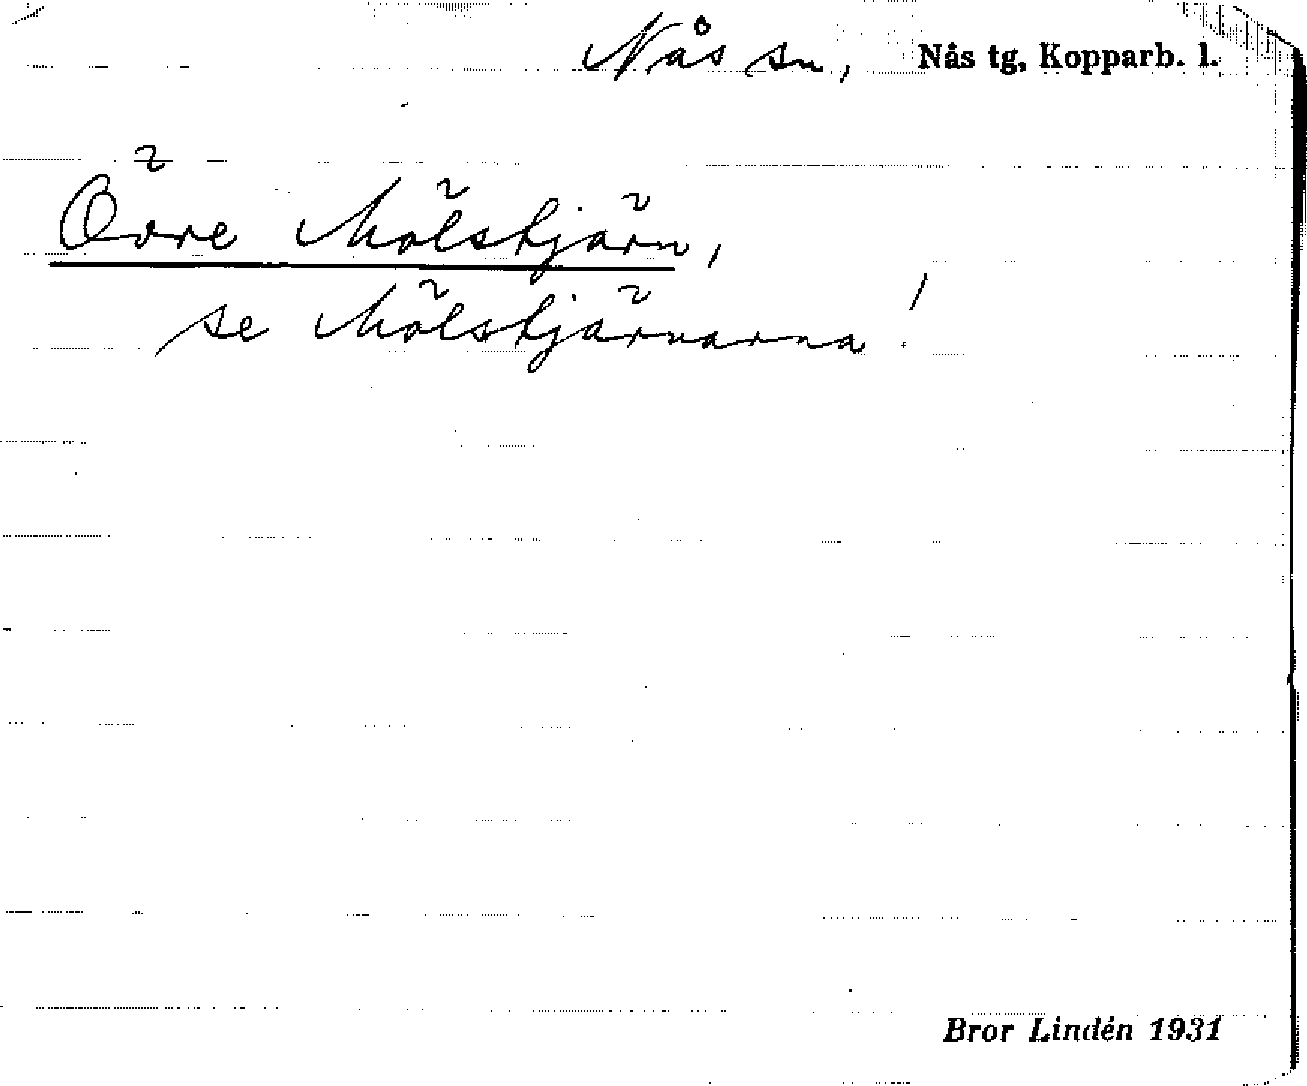 Nås sn, Nås tg, Kopparb. l.
Övre Mölstjärn,
se Mölstjärnarna!
Bror Lindén 1931